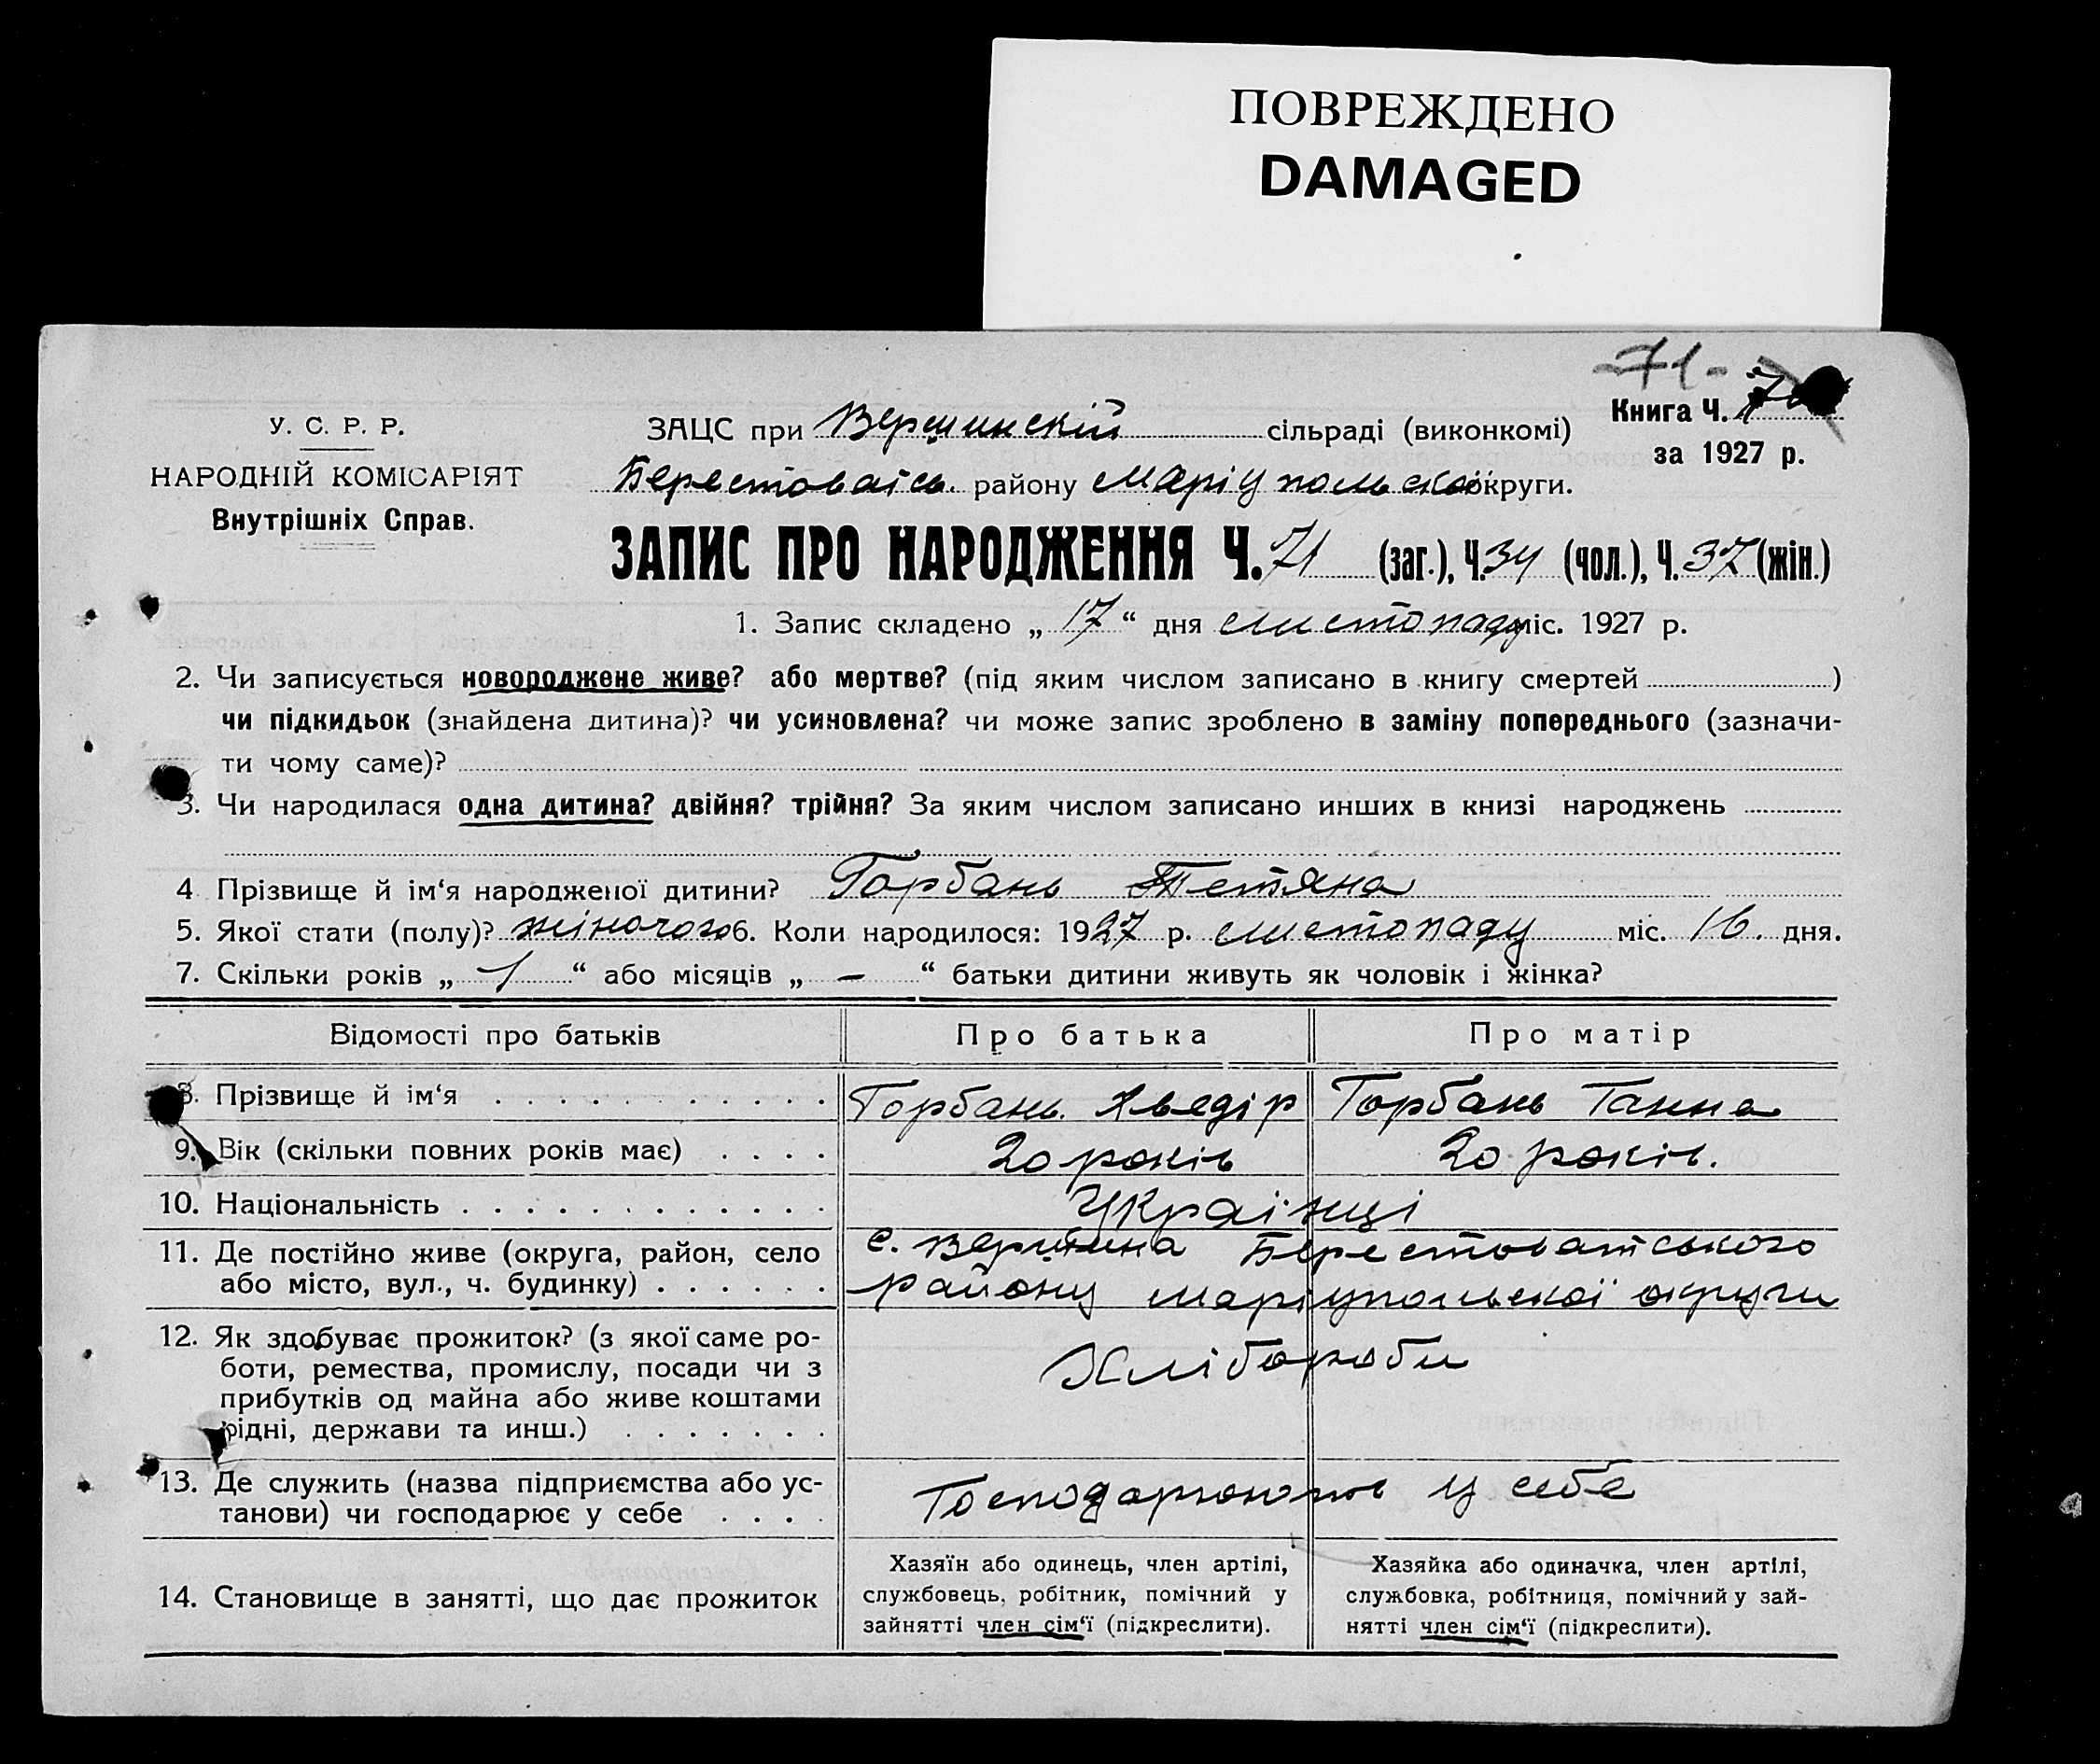 ПОВРЕЖДЕНО
DAMAGED
-71-
У. С. Р. Р.
НАРОДНІЙ КОМІСАРІЯТ
Внутрішніх Справ.
ЗАЦС при Вершинскій сільраді (виконкомі)
Книга Ч.
за 1927 р.
Берестоваісь. району Маріупольської округи.
ЗАПИС ПРО НАРОДЖЕННЯ Ч. 71 (заг.), Ч. 34 (чол.), Ч. 37 (жін.)
1. Запис складено „ 17 “ дня листопаду міс. 1927 р.
2. Чи записується новороджене живе? або мертве? (під яким числом записано в книгу смертей )
чи підкидьок (знайдена дитина)? чи усиновлена? чи може запис зроблено в заміну попереднього (зазначи-
ти чому саме)?
3. Чи народилася одна дитина? двійня? трійня? За яким числом записано инших в книзі народжень
4 Прізвище й ім‘я народженої дитини? Горбань Тетяна
5. Якої стати (полу)? жіночого 6. Коли народилося: 1927 р. листопаду міс. 16. дня.
7. Скільки років „ 1 “ або місяців „ – “ батьки дитини живуть як чоловік і жінка?
Відомості про батьків Про батька Про матір
8. Прізвище й ім‘я Горбань Хведір Горбань Ганна
9. Вік (скільки повних років має) 20 років 20 років.
10. Національність Українці
11. Де постійно живе (округа, район, село с. Вершина Берестоватського
або місто, вул., ч. будинку) району Маріупольскої округи
12. Як здобуває прожиток? (з якої саме ро-
боти, ремества, промислу, посади чи з Хлібороби
прибутків од майна або живе коштами
рідні, держави та инш.)
13. Де служить (назва підприємства або ус- Господарюють у себе
танови) чи господарює у себе
14. Становище в занятті, що дає прожиток
Хазяїн або одинець, член артілі,
службовець, робітник, помічний у
зайнятті член сім‘ї (підкреслити).
Хазяйка або одиначка, член артілі,
службовка, робітниця, помічний у зай-
нятті член сім‘ї (підкреслити).